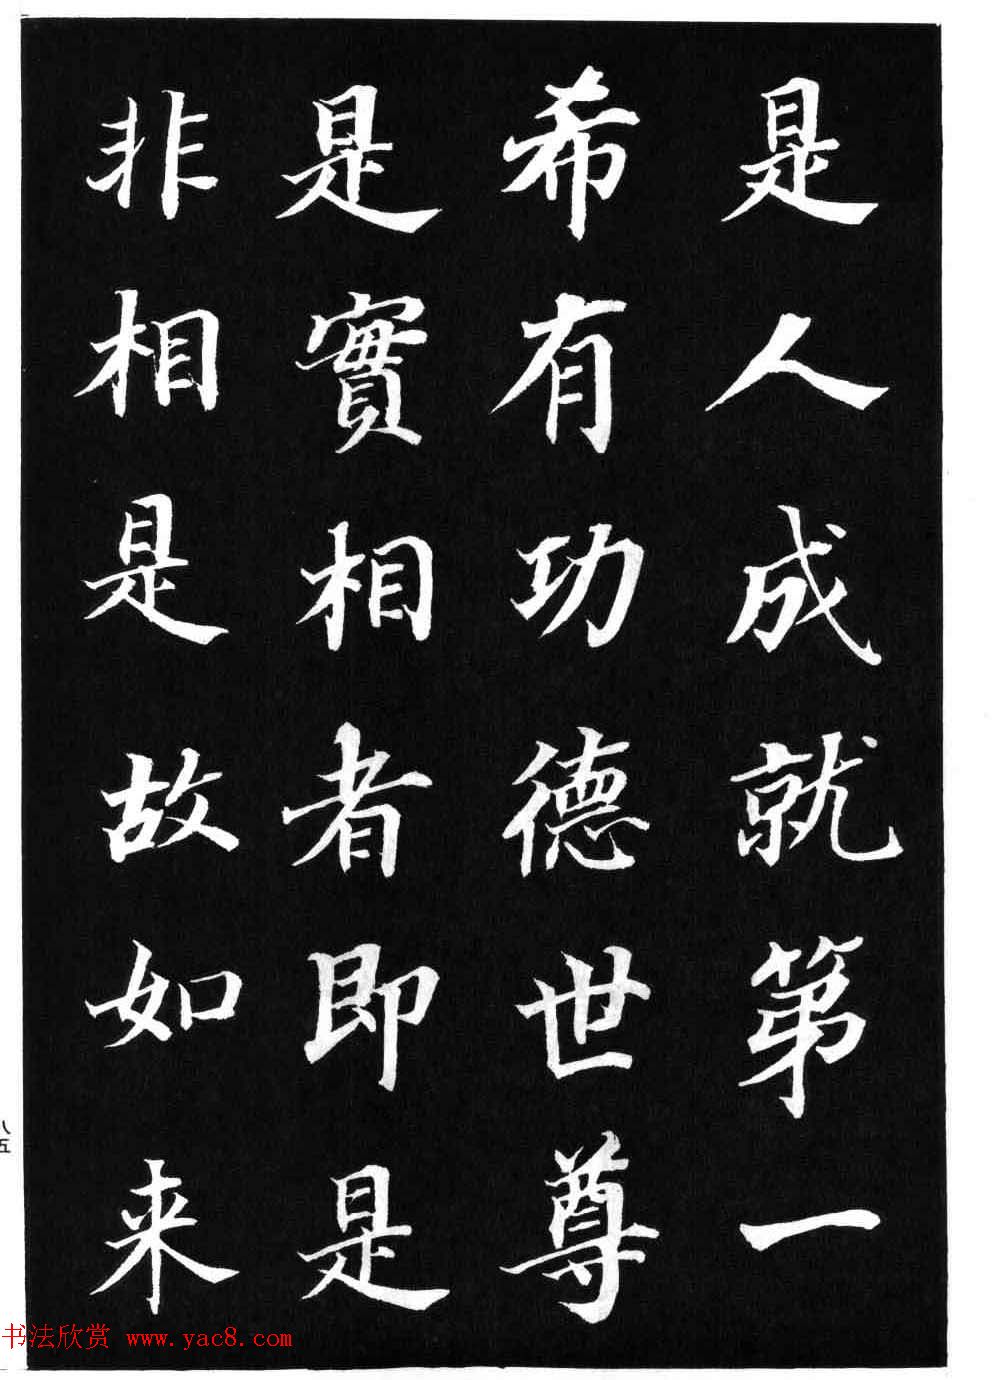 是人成就第一
希有功德世尊
是實相者即是
非相是故如来
八五
书法欣赏 www.yac8.com